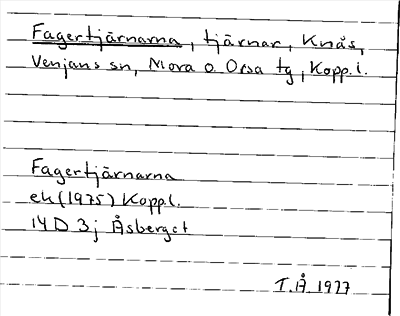 Fagertjärnarna, tjärnar, Knås,
Venjans sn, Mora o Orsa tg, Kopp.l.
Fagertjärnarna
ek (1975) Kopp.l.
14D 3j Åsberget
T.Å. 1977